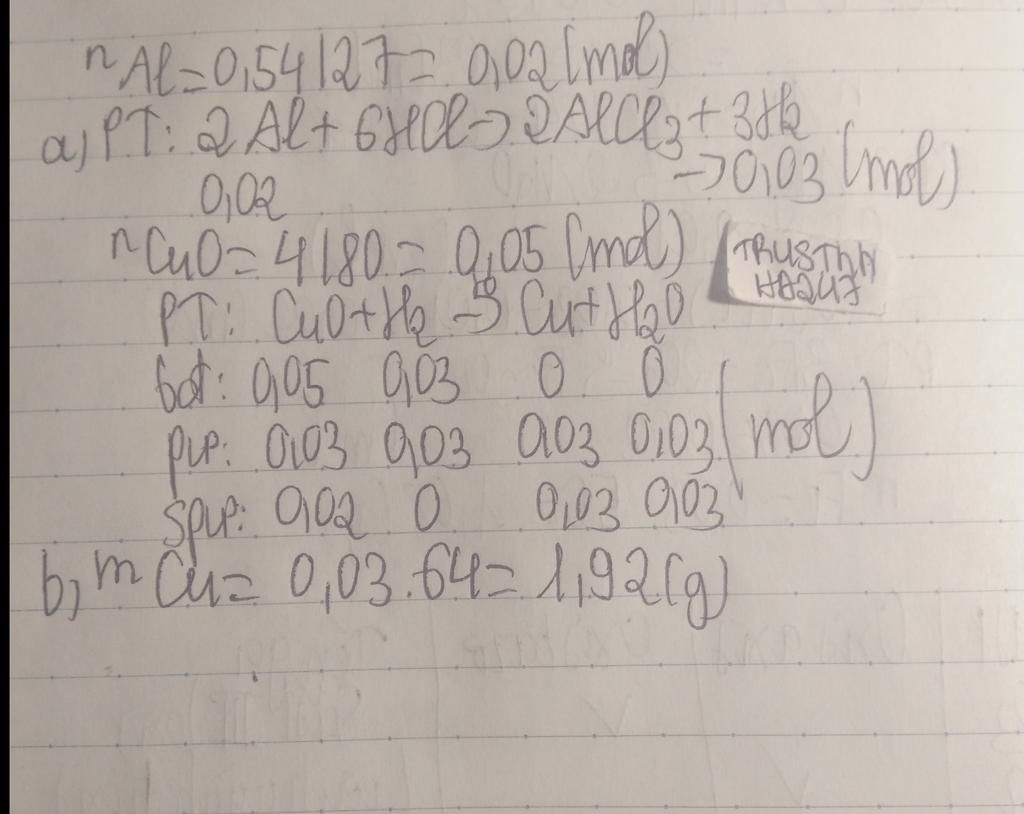 nAl=0,54/27= 0,02(mol)
a, PT: 2Al+6HCl→2AlCl3+3H2
0,02 →0,03 (mol)
nCuO=4/80= 0,05(mol)
TRUSTNN
HB247
PT: CuO+H2 →t° Cu+H2O
bđ: 0,05 0,03 0 0
pư: 0,03 0,03 0,03 0,03 (mol)
spư: 0,02 0 0,03 0,03
b, mCu= 0,03.64=1,92(g)